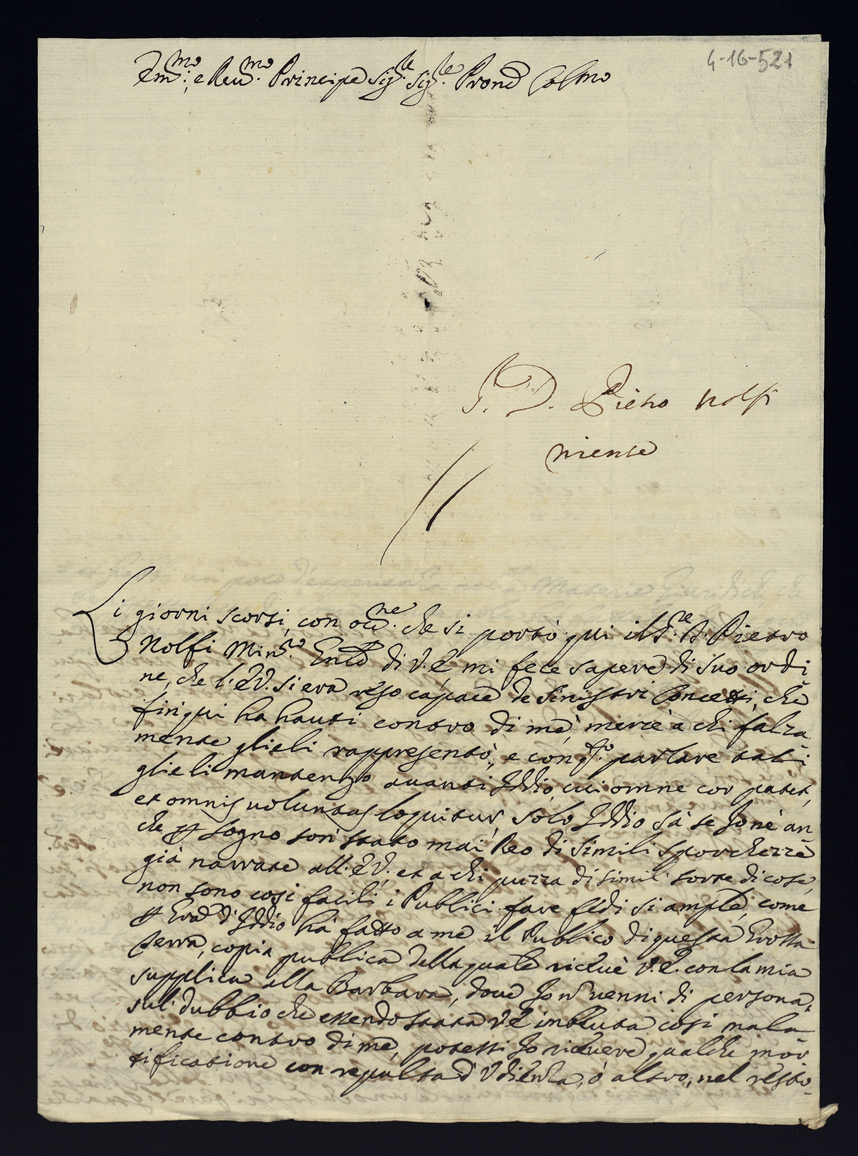 Em.mo, e Reu.mo Principe Sig.re Sig.re Pron
4-16-521
S. D. Pietro Nolfi
niente
Li giorni scorsi, con occ.ne che si portò qui il S.re D. Pietro
Nolfi Min.ro di V.E. mi fece sapere di suo ordi
ne, che l'E.V. si era reso capace de sinistri Concetti, che
fin qui ha hauti contro di me, mercè a chi falza
mente glieli rappresentò, e con parlare tali
glieli mantengo auanti Iddio, cui omne cor patet,
et omnis voluntas loquitur, Solo Iddio sà se Io nè an
che p sogno son stato mai Reo di simili sporchezze
già narrate all'E.V. et a chi puzza di simil sorte di cose,
non sono cosi facili i Publici fare fedi si ample, come
p di Iddio hà fatto a me il Publico di questa Grotta
ferra, copia publica della quale riceuè V.E. con la mia
supplica alla Barbara, doue Io n uenni di persona,
sul dubbio che essendo stata V.E. inbeuta cosi mala
mente contro di me, potessi Io riceuere qualche mor
tificatione con repulsa d'Vdienza, ò altro, nel resto